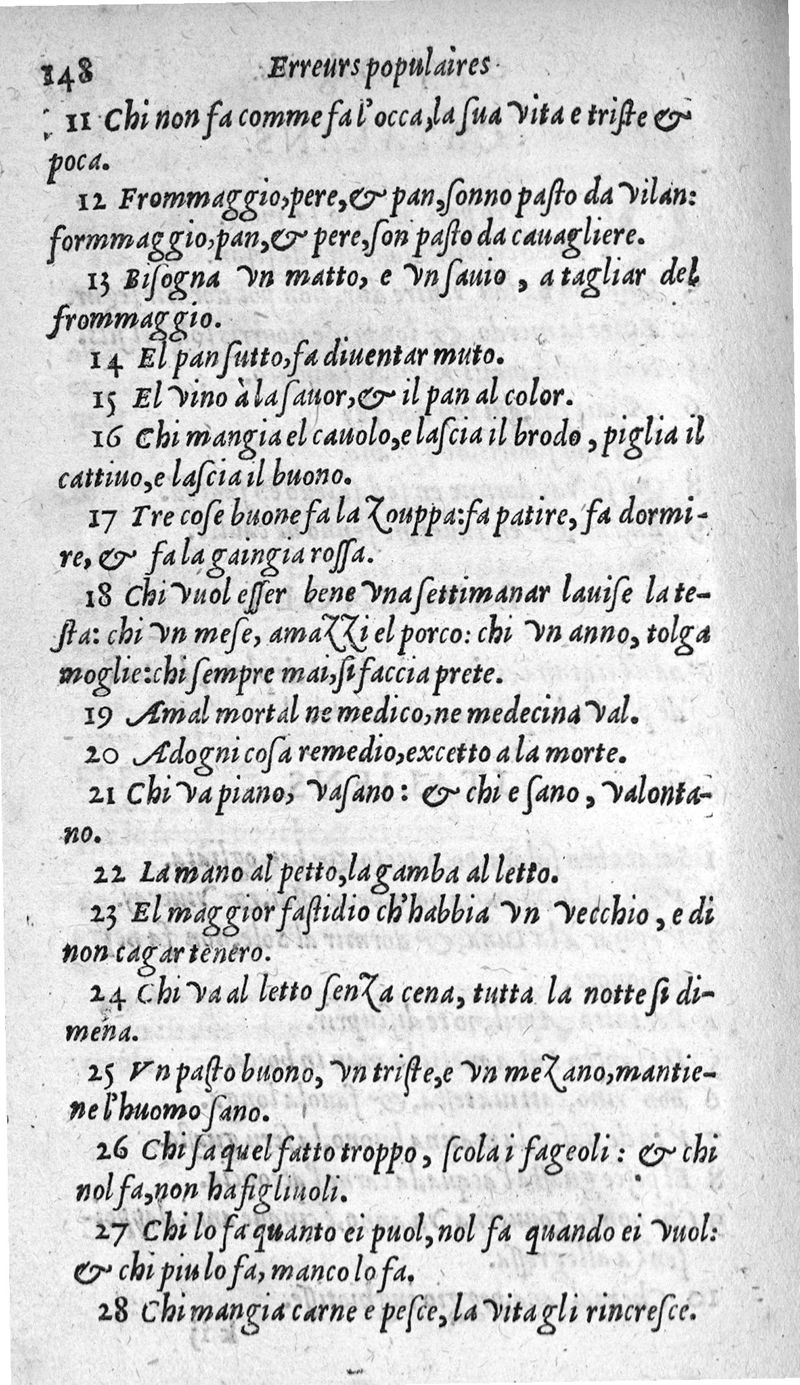 148 Erreurs populaires
11 Chi non fa comme fa l'occa, la ſua vita e triſte &
poca.
12 Frommaggio, pere, & pan, ſonno paſto da vilan:
formmaggio, pan, & pere, ſon paſto da cauagliere.
13 Biſogna vn matto, e vn ſauio, a tagliar del
frommaggio.
14 El pan ſutto, fa diuentar muto.
15 El vino à la ſauor, & il pan al color.
16 Chi mangia el cauolo, e laſcia il brodo, piglia il
cattiuo, e laſcia il buono.
17 Tre coſe buone fa la zouppa: fa patire, fa dormi-
re, & fa la gaingia roſſa.
18 Chi vuol eſſer bene vna ſettimanar lauiſe la te-
ſta: chi vn meſe, amazzi el porco: chi vn anno, tolga
moglie: chi ſempre mai, ſi faccia prete.
19 Amal mortal ne medico, ne medecina val.
20 Adogni coſa remedio, excetto a la morte.
21 Chi va piano, va ſano: & chi e ſano, va lonta-
no.
22 La mano al petto, la gamba al letto.
23 El maggior faſtidio ch'habbia vn vecchio, e di
non cagar tenero.
24 Chi va al letto ſenza cena, tutta la notte ſi di-
mena.
25 Vn paſto buono, vn triſte, e vn mezano, mantie-
ne l'huomo ſano.
26 Chi fa quel fatto troppo, ſcola i fageoli: & chi
nol fa, non ha figliuoli.
27 Chi lo fa quanto ei puol, nol fa quando ei vuol:
& chi piu lo fa, manco lo fa.
28 Chi mangia carne e peſce, la vita gli rincreſce.